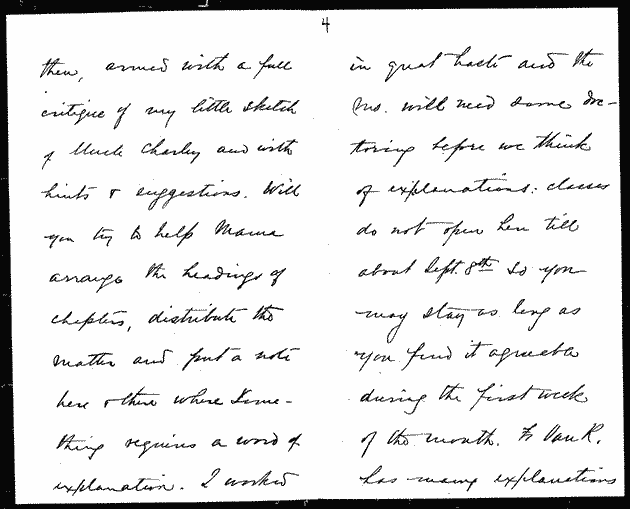 4
then, armed with a full
critique of my little sketch
of Uncle Charley and with
hints & suggestions. Will
you try to help Mama
arrange the headings of
chapters, distribute the
matter and put a note
here & there where some-
thing requires a word of
explanation. I worked
in great haste and the
ms. will need some doc-
toring before we think
of explanations: classes
do not open here till
about Sept. 8th so you
may stay as long as
you find it agreeable
during the first week
of the month. Van R.
has many explanations